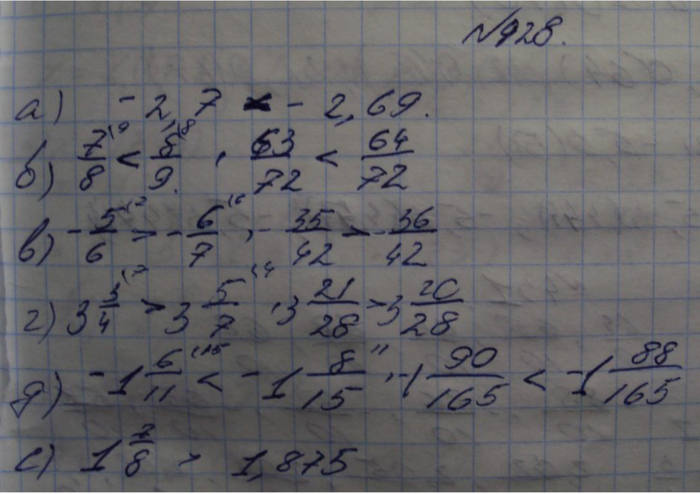 №928.
а) -2,7 < -2,69.
б) 7/8 < 8/9, 63/72 < 64/72
в) -5/6 > -6/7, -35/42 > -36/42
г) 3 3/4 > 3 5/7, 3 21/28 > 3 20/28
д) -1 6/11 < -1 8/15, -1 90/165 < -1 88/165
е) 1 7/8 > 1,875